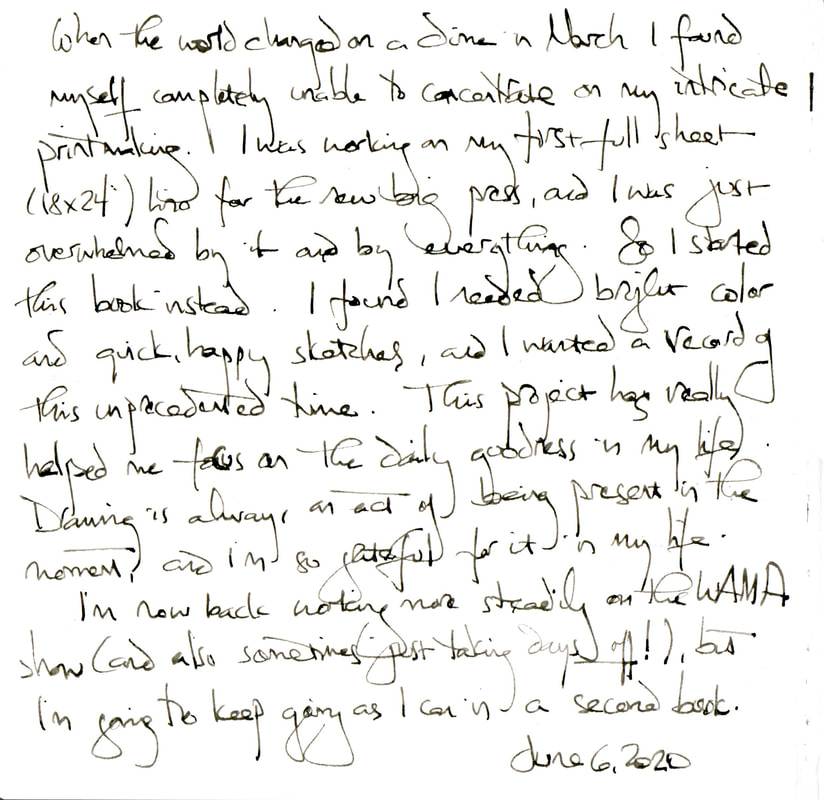 When the world changed on a dime in March I found
myself completely unable to concentrate on my intricate
printmaking. I was working on my first full sheet
(18x24") lino for the new big press, and I was just
overwhelmed by it and by everything. So I started
this book instead. I found I needed bright color
and quick, happy sketches, and I wanted a record of
this unprecedented time. This project has really
helped me focus on the daily goodness in my life.
Drawing is always an act of being present in the
moment, and I'm so grateful for it in my life.
I'm now back working more steadily on the WAMA
show (and also sometimes just taking days off!), but
I'm going to keep going as I can in a second book.
June 6, 2020